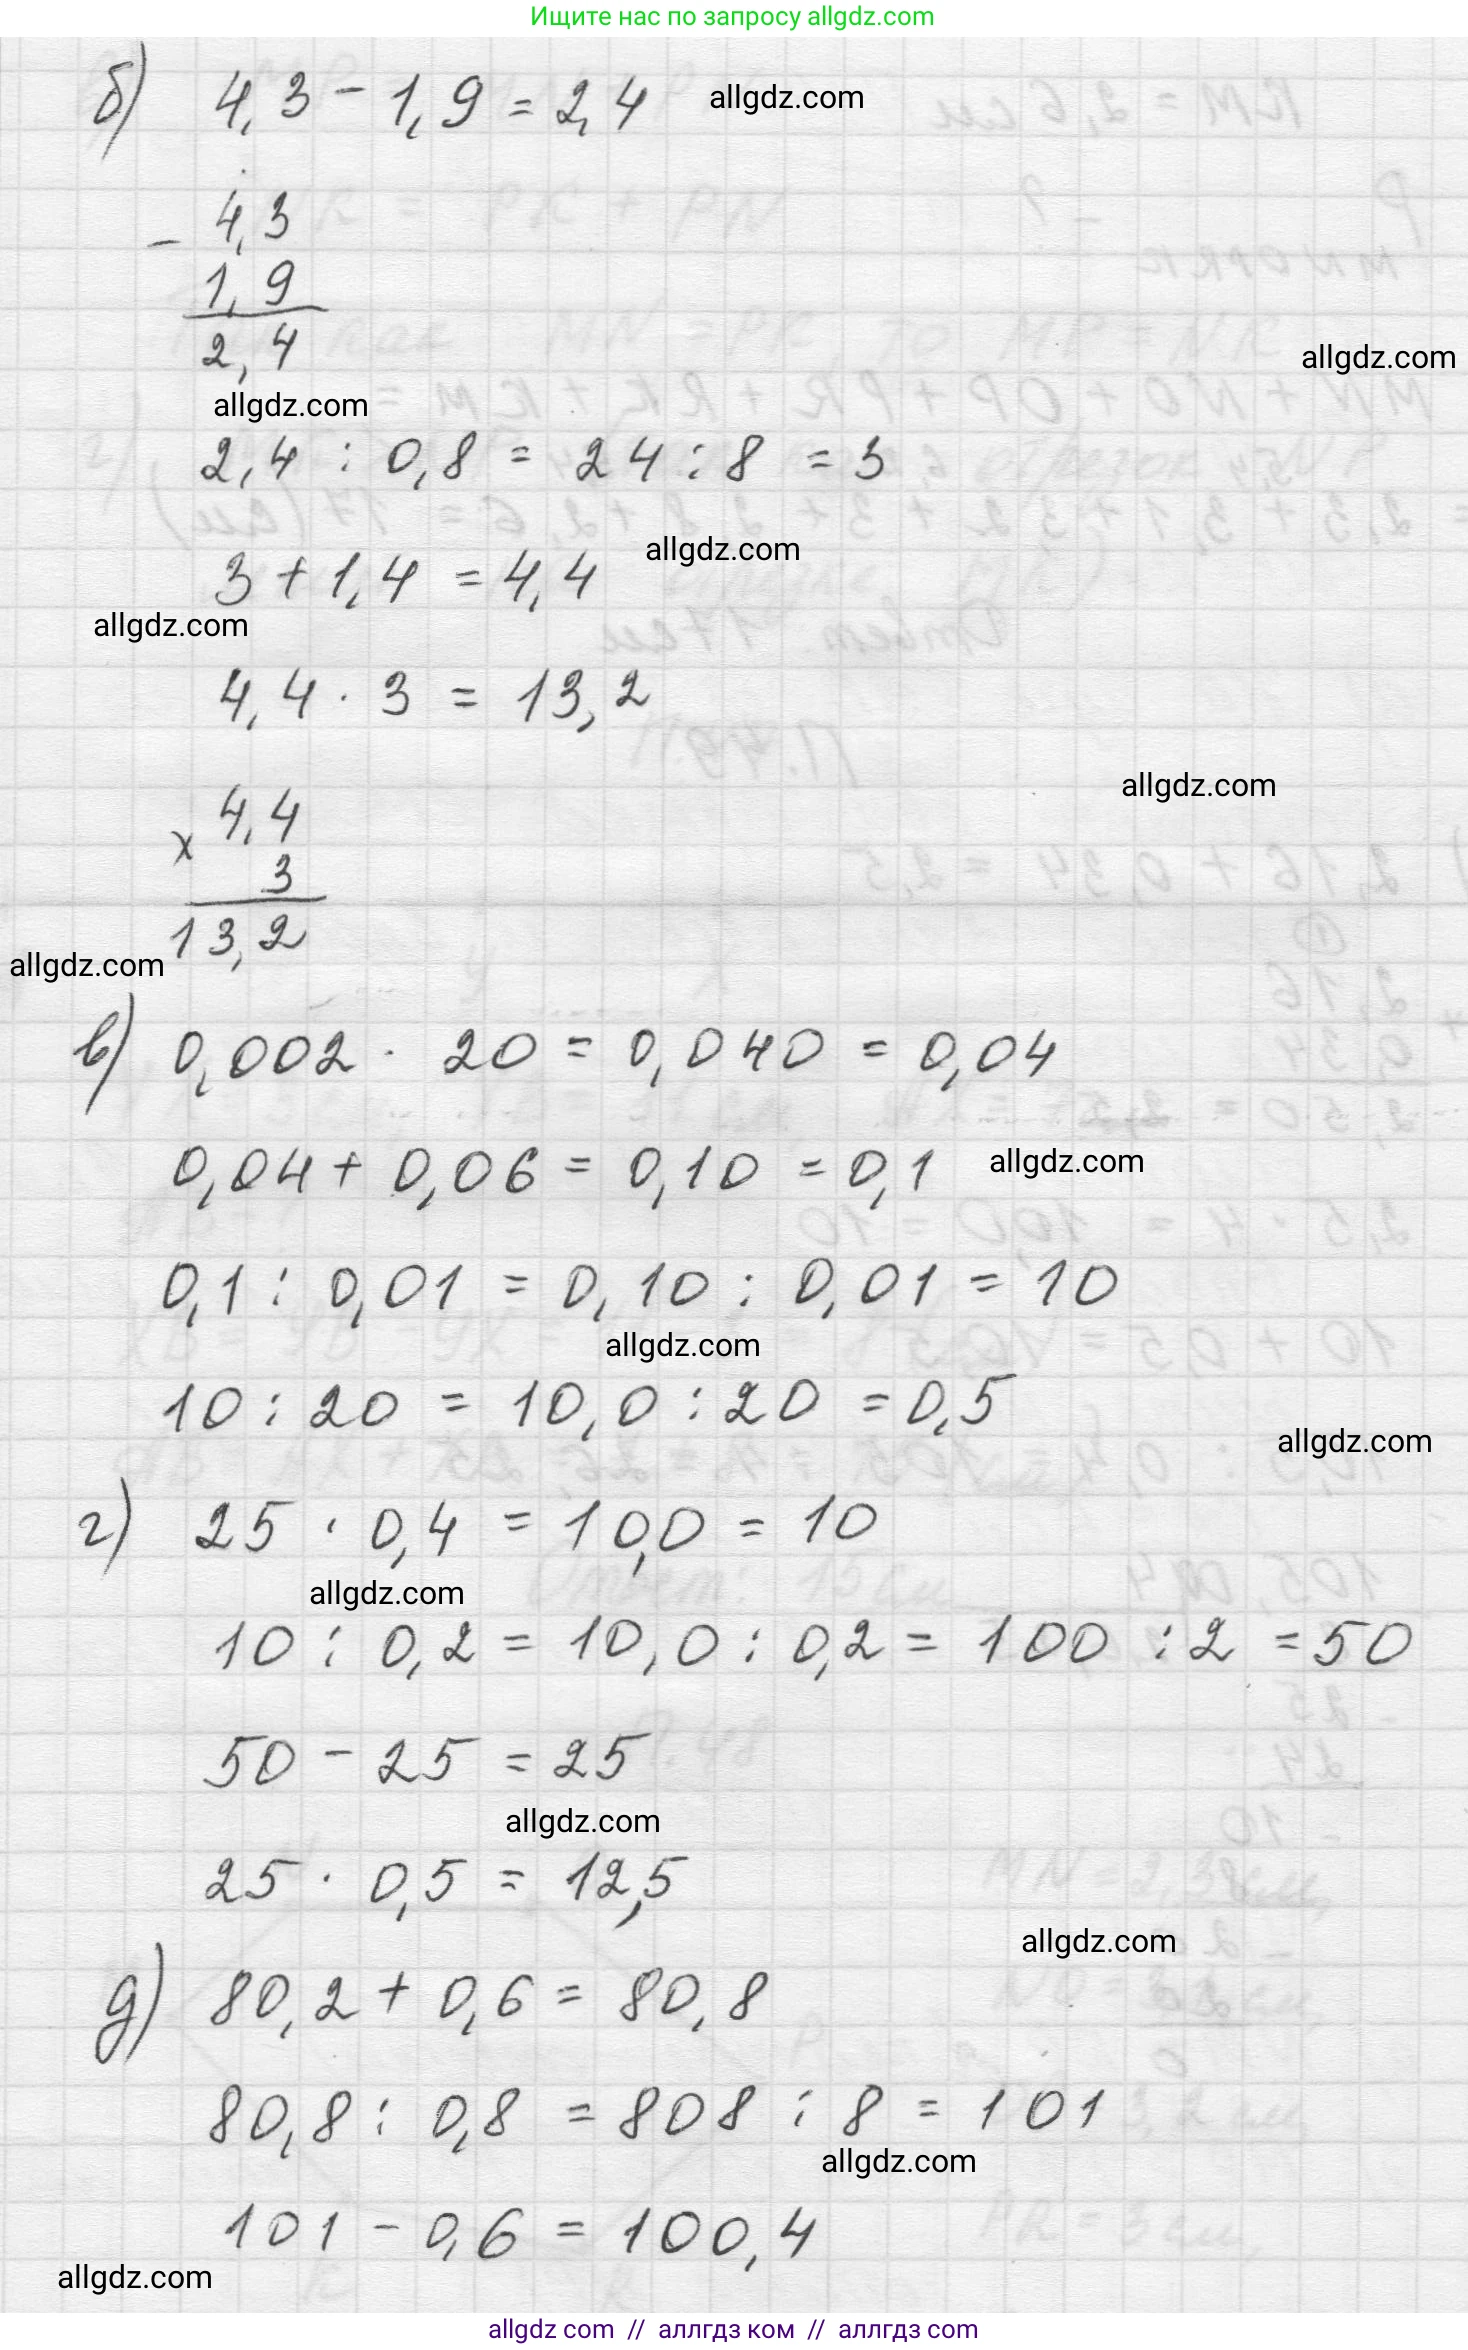 Ищите нас по запросу allgdz.com
б) 4,3 - 1,9 = 2,4
allgdz.com
- 4,3
1,9
2,4
allgdz.com
allgdz.com
2,4 : 0,8 = 24 : 8 = 3
allgdz.com
3 + 1,4 = 4,4
allgdz.com
4,4 · 3 = 13,2
allgdz.com
x 4,4
3
13,2
allgdz.com
в) 0,002 · 20 = 0,040 = 0,04
0,04 + 0,06 = 0,10 = 0,1
allgdz.com
0,1 : 0,01 = 0,10 : 0,01 = 10
allgdz.com
10 : 20 = 10,0 : 20 = 0,5
allgdz.com
г) 25 · 0,4 = 10,0 = 10
allgdz.com
10 : 0,2 = 10,0 : 0,2 = 100 : 2 = 50
50 - 25 = 25
allgdz.com
25 · 0,5 = 12,5
allgdz.com
д) 80,2 + 0,6 = 80,8
80,8 : 0,8 = 808 : 8 = 101
allgdz.com
101 - 0,6 = 100,4
allgdz.com
allgdz.com // аллгдз ком // аллгдз com